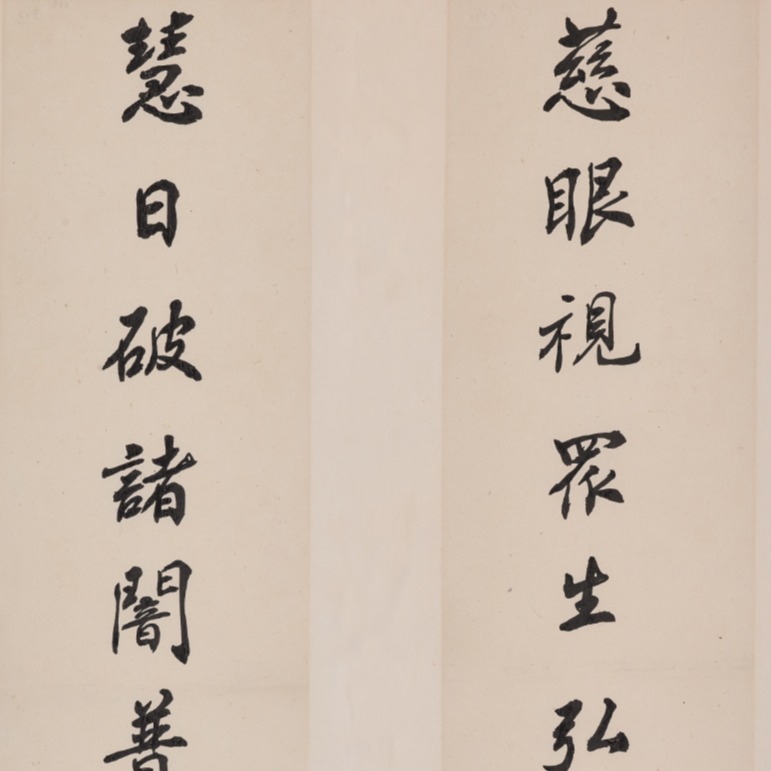 慈眼視眾生弘
慧日破諸闇普